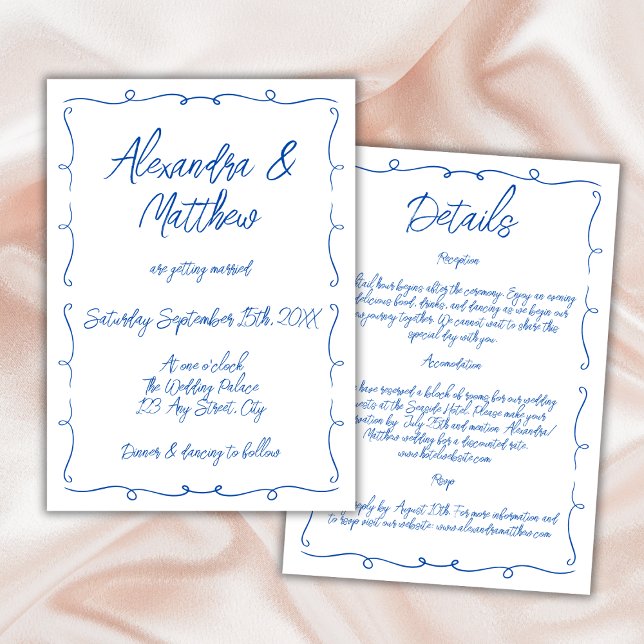 Alexandra &
Matthew
are getting married
Saturday September 15th, 20XX
At one o'clock
The Wedding Palace
123 Any Street, City
Dinner & dancing to follow
Details
Reception
hour begins after the ceremony. Enjoy an evening
delicious food, drinks, and dancing as we begin our
journey together. We cannot wait to share this
special day with you.
Accomodation
have reserved a block of rooms for our wedding
at the Seaside Hotel. Please make your
by July 25th and mention Alexandra/
Matthew wedding for a discounted rate.
www.hotelwebsite.com
Rsvp
reply by August 10th. For more information and
to rsvp visit our website: www.alexandramatthew.com